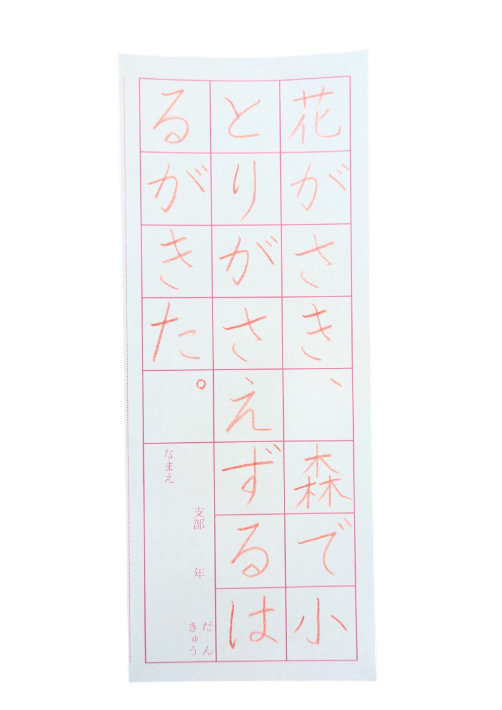 花がさき、森で小
とりがさえずるは
るがきた。
なまえ
支部
年
だん
きゅう